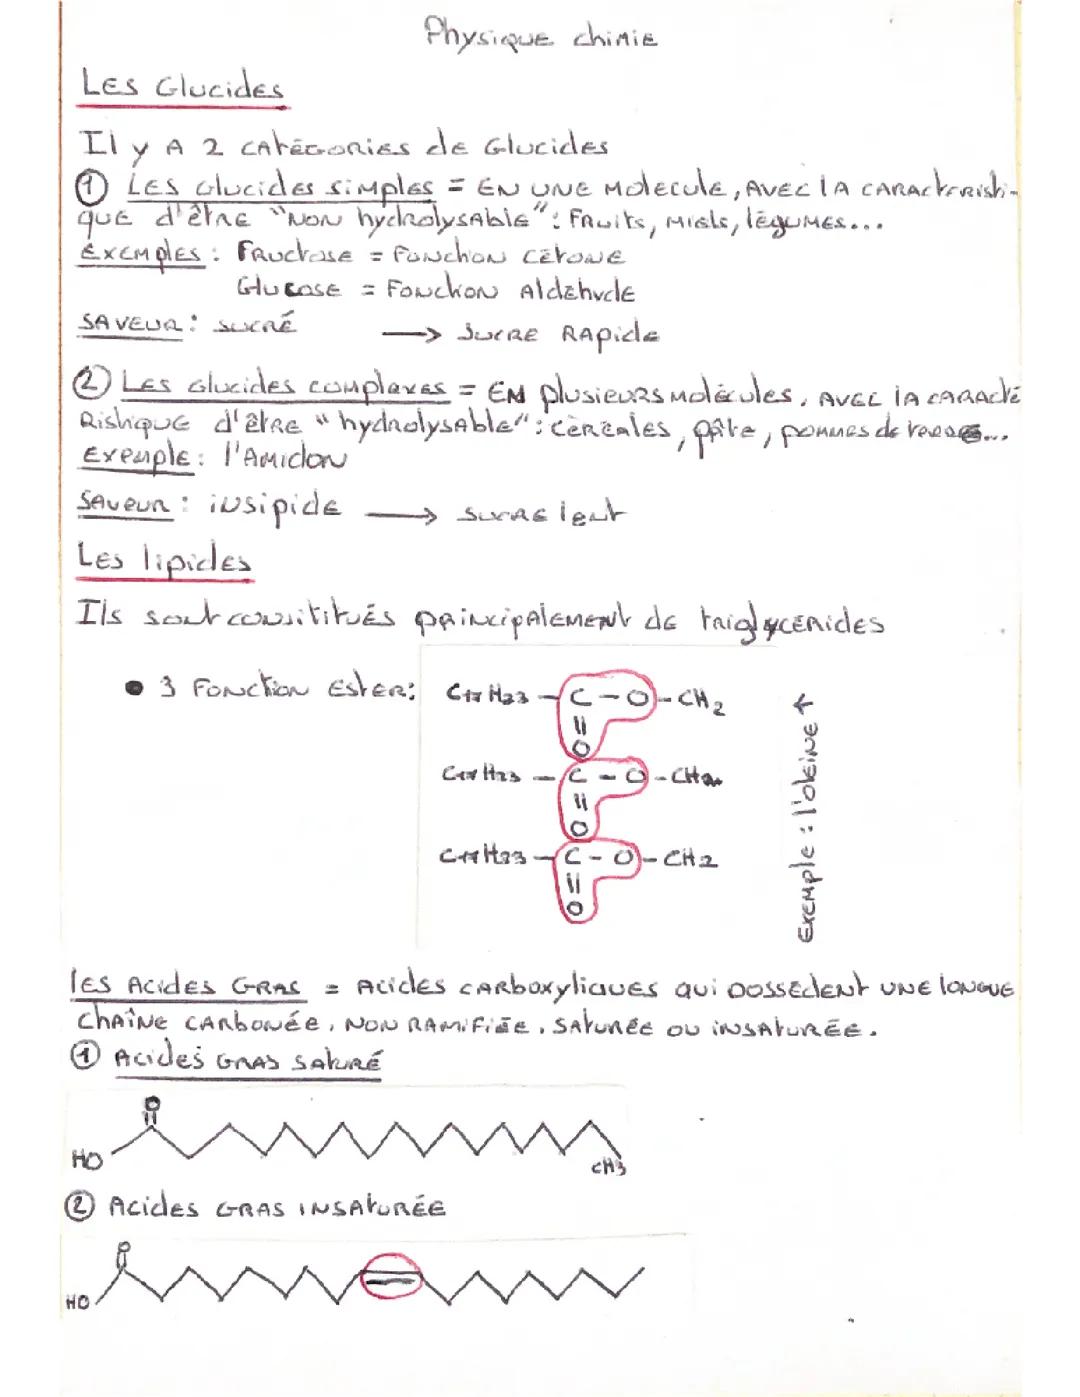 Physique chimie
Les Glucides
Il y a 2 catégories de Glucides
① Les glucides simples = En une molecule, avec la caracteristi-
que d'être "non hydrolysable" : fruits, miels, légumes...
Exemples : Fructose = Fonction cétone
Glucose = Fonction Aldehyde
Saveur : sucré → Sucre Rapide
② Les glucides complexes = En plusieurs molécules, avec la caracté
Ristique d'être "hydrolysable" : céréales, pâte, pommes de terres...
Exemple : l'Amidon
Saveur : insipide → sucre lent
Les lipides
Ils sont constitués principalement de triglycerides
• 3 Fonction Ester :
C17 H33 - C - O - CH2
||
O
C17 H33 - C - O - CH
||
O
C17 H33 - C - O - CH2
||
O
Exemple : l'oleine ↑
les Acides Gras = Acides carboxyliques qui possèdent une longue
chaîne carbonée, non ramifiée, saturée ou insaturée.
① Acides gras saturé
O
HO
CH3
② Acides gras insaturée
O
HO